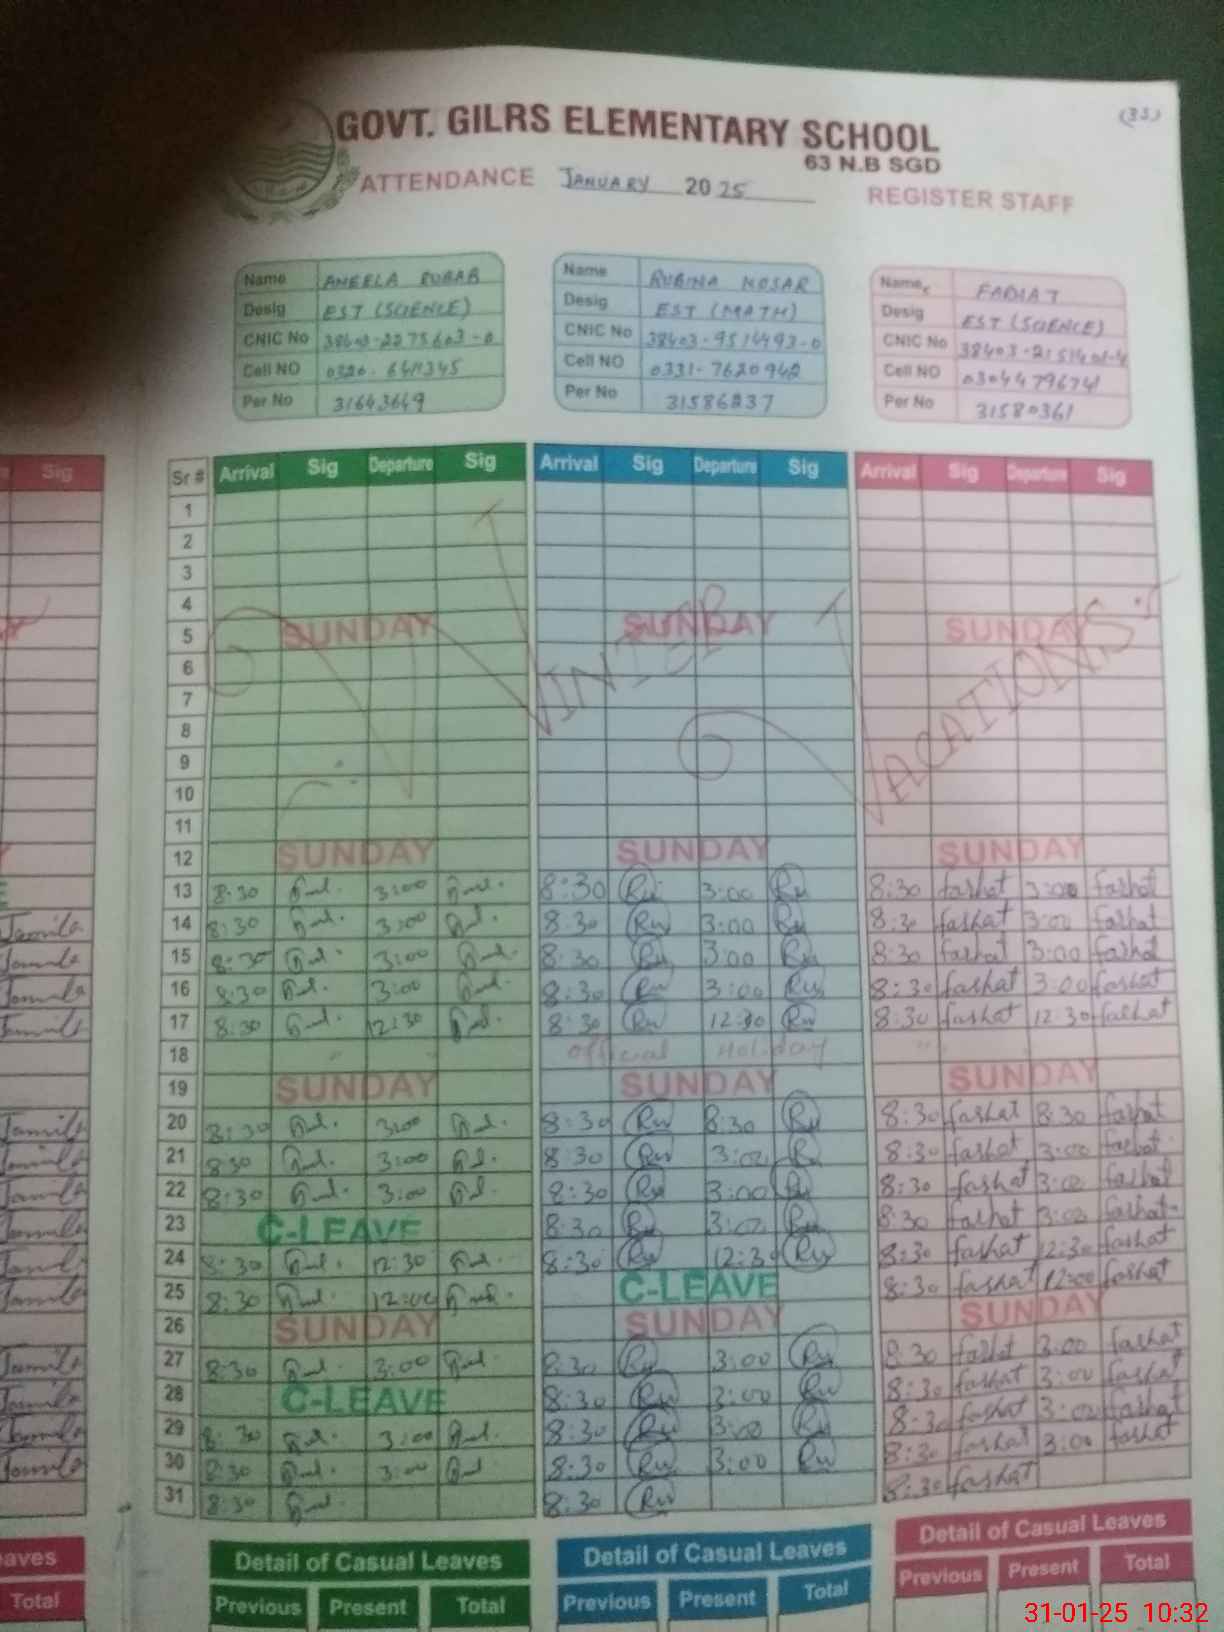 (35)
GOVT. GILRS ELEMENTARY SCHOOL
63 N.B SGD
ATTENDANCE JANUARY 2025 REGISTER STAFF
Name ANEELA RUBAB
Desig EST (SCIENCE)
CNIC No 38403-2275603-0
Cell NO
Per No 31643649
Name RUBINA KOSAR
Desig EST (MATH)
CNIC No 38403-9514493-0
Cell NO 0331-7620942
Per No 31586237
Name
Desig EST (SCIENCE)
CNIC No
Cell NO 03044796741
Per No 31580361
Sig
Sr # Arrival Sig Departure Sig Arrival Sig Departure Sig Arrival Sig Departure Sig
1
2
3
4
5 SUNDAY SUNDAY SUNDAY
6
7
8
9
10
11
WINTER VACATIONS
12 SUNDAY SUNDAY SUNDAY
13 8:30 3:00 8:30 Ru 3:00 Ru 8:30 farhat 3:00 farhat
Jamila 14 8:30 3:00 8:30 Ru 3:00 Ru 8:30 farhat 3:00 farhat
Jamila 15 8:30 3:00 8:30 Ru 3:00 Ru 8:30 farhat 3:00 farhat
Jamila 16 8:30 3:00 8:30 Ru 3:00 Ru 8:30 farhat 3:00 farhat
Jamila 17 8:30 12:30 8:30 Ru 12:30 Ru 8:30 farhat 12:30 farhat
18 " " Official Holiday "
19 SUNDAY SUNDAY SUNDAY
Jamila 20 8:30 3:00 8:30 Ru 8:30 Ru 8:30 farhat 8:30 farhat
Jamila 21 8:30 3:00 8:30 Ru 3:00 Ru 8:30 farhat 3:00 farhat
Jamila 22 8:30 3:00 8:30 Ru 3:00 Ru 8:30 farhat 3:00 farhat
Jamila 23 C-LEAVE 8:30 Ru 3:00 Ru 8:30 farhat 3:00 farhat
Jamila 24 8:30 12:30 8:30 Ru 12:30 Ru 8:30 farhat 12:30 farhat
Jamila 25 8:30 12:00 C-LEAVE 8:30 farhat 12:00 farhat
26 SUNDAY SUNDAY SUNDAY
Jamila 27 8:30 3:00 8:30 Ru 3:00 Ru 8:30 farhat 3:00 farhat
Jamila 28 C-LEAVE 8:30 Ru 3:00 Ru 8:30 farhat 3:00 farhat
Jamila 29 8:30 3:00 8:30 Ru 3:00 Ru 8:30 farhat 3:00 farhat
Jamila 30 8:30 3:00 8:30 Ru 3:00 Ru 8:30 farhat 3:00 farhat
31 8:30 8:30 Ru 8:30 farhat
Detail of Casual Leaves Detail of Casual Leaves Detail of Casual Leaves
Total Previous Present Total Previous Present Total Previous Present Total
31-01-25 10:32